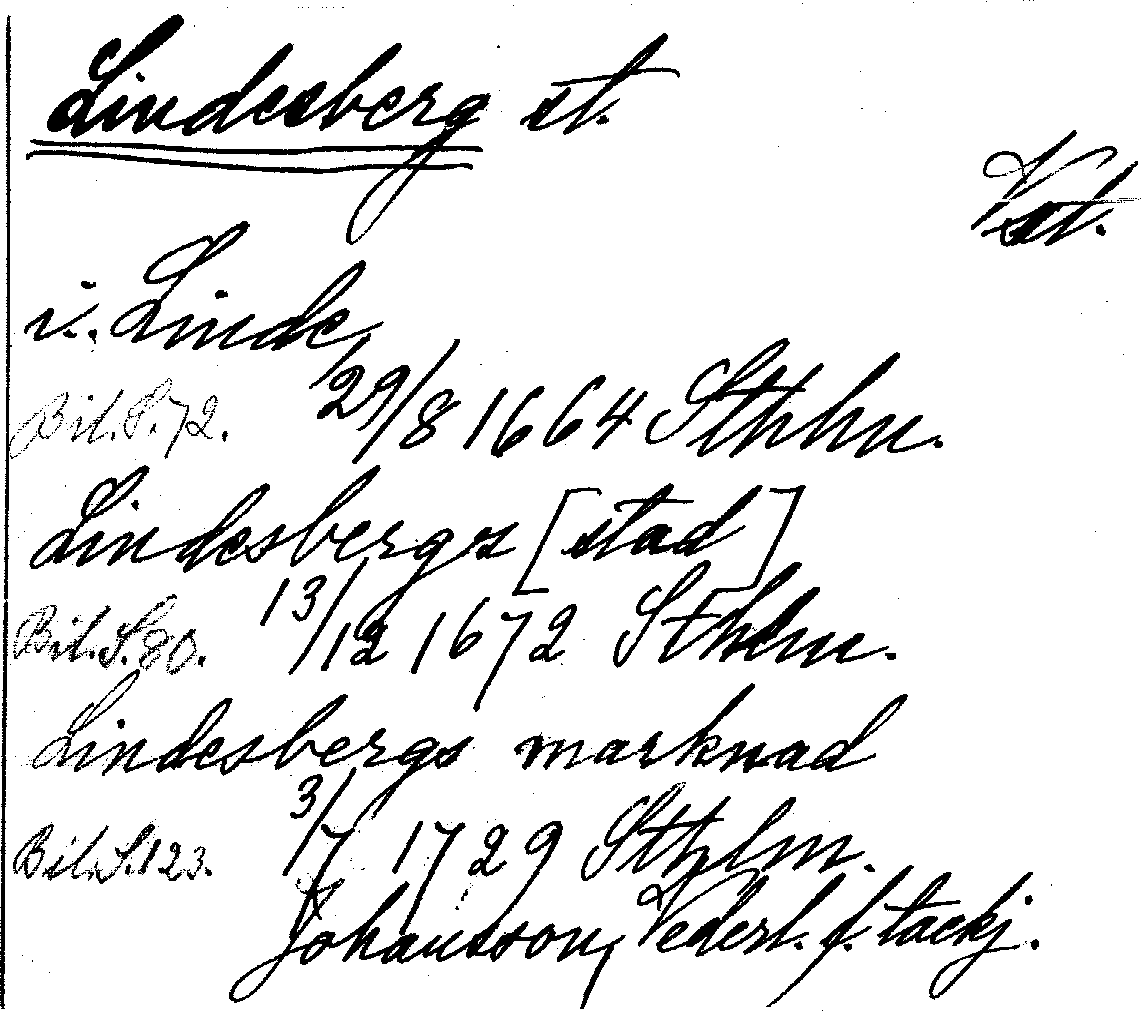 Lindesberg st.
Vst.
i. Linde
Bil. S. 72. 29/8 1664 Sthlm.
Lindesbergs [stad]
Bil. S. 80. 13/12 1672 Sthlm.
Lindesbergs marknad
Bil. S. 123. 3/7 1729 Sthlm.
Johansson, Vederl. f. tackj.